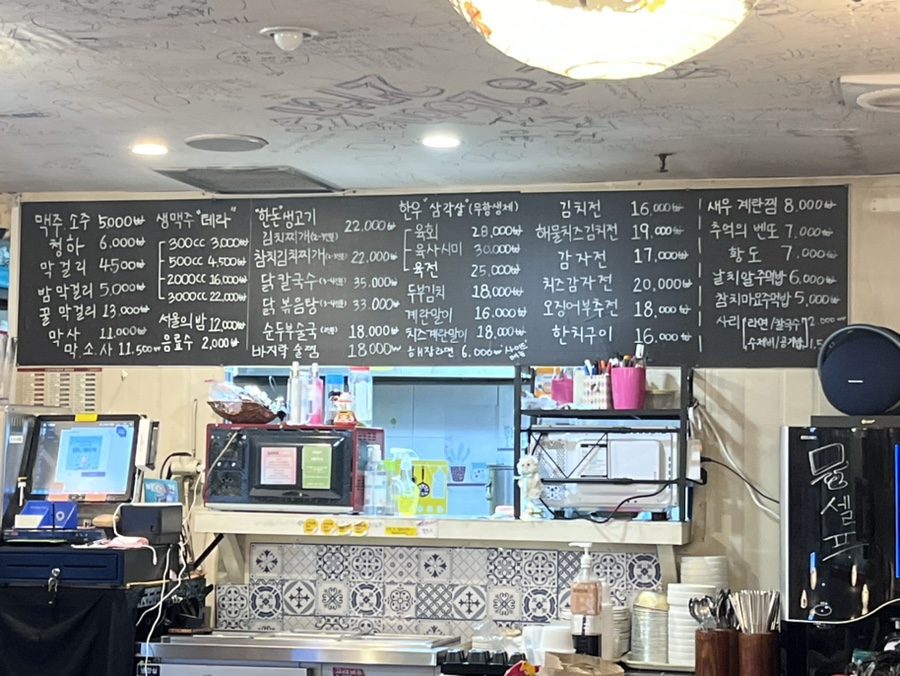 맥주 소주 5,000₩
청하 6,000₩
막걸리 4500₩
밤 막걸리 5,000₩
꿀 막걸리 13,000₩
막사 11,000₩
막소사 11.500₩
생맥주 "테라"
300cc 3,000₩
500cc 4,500₩
2000cc 16,000₩
3000cc 22,000₩
서울의 밤 12,000₩
음료수 2,000₩
"한돈" 생고기
김치찌개 22,000₩
참치김치찌개 22,000₩
닭 칼국수 35,000₩
닭 볶음탕 33,000₩
순두부술국 18,000₩
바지락 술찜 18,000₩
한우 "삼각살" (무항생제)
육회 28,000₩
육사시미 30,000₩
육전 25,000₩
두부김치 18,000₩
계란말이 16,000₩
치즈계란말이 18,000₩
해장라면 6,000₩
김치전 16,000₩
해물치즈김치전 19,000₩
감자전 17,000₩
치즈감자전 20,000₩
오징어부추전 18,000₩
한치구이 16,000₩
새우 계란찜 8,000₩
추억의 벤또 7,000₩
황도 7,000₩
날치알주먹밥 6,000₩
참치마요주먹밥 5,000₩
사리 라면/칼국수 2,000₩
수제비/공기밥
물 셀프